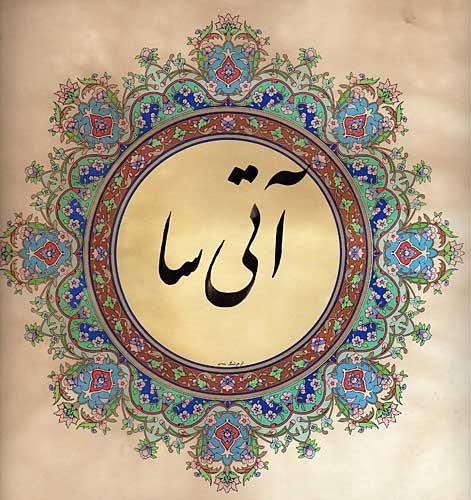 آتی سا